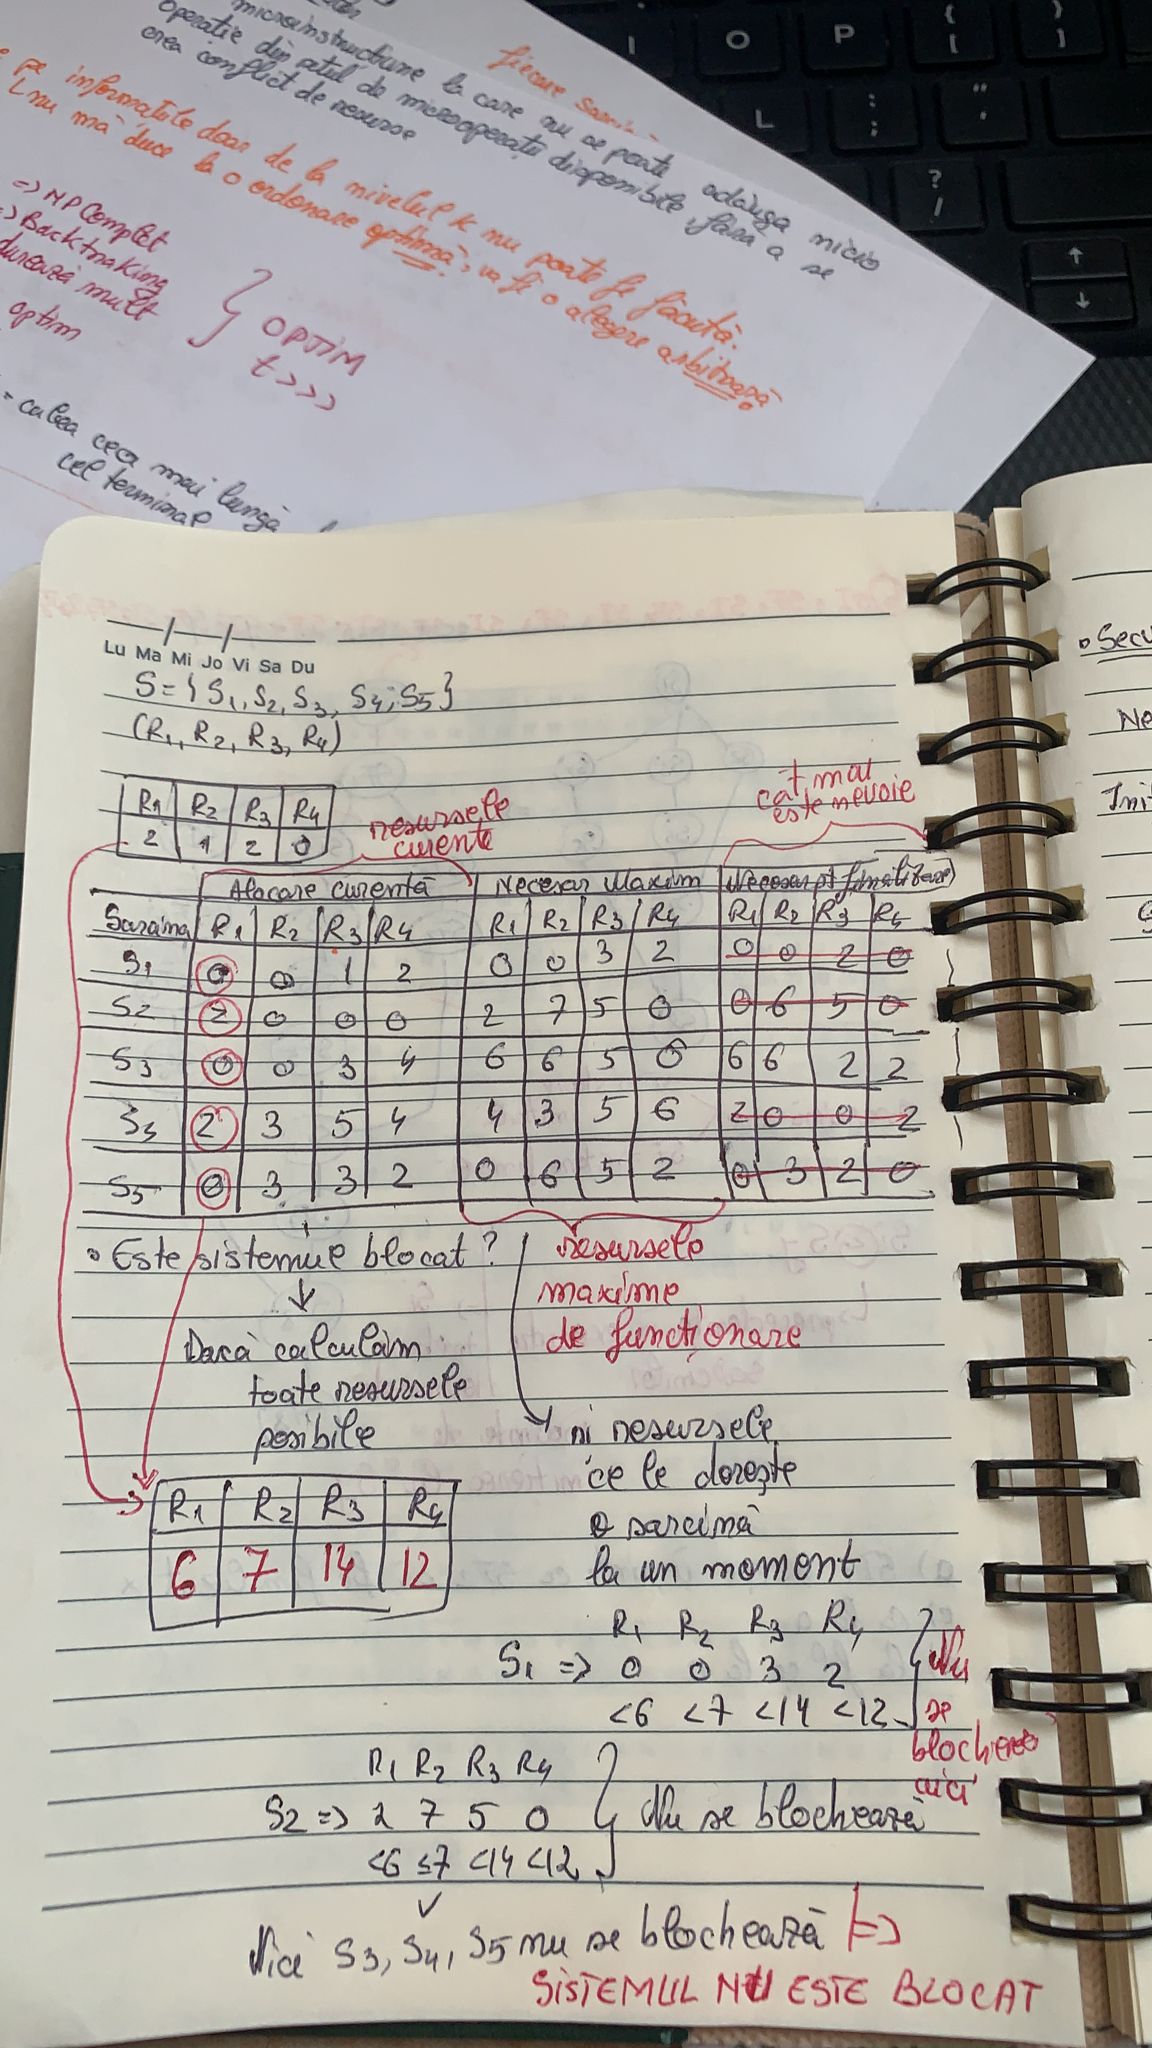 microinstructiune la care nu se poate adăuga nicio
operatie din setul de microoperatii disponibile fără a se
crea conflict de resurse
fiecare
pe informatiile doar de la nivelul k nu poate fi făcută.
nu mă duce la o ordonare optimă, va fi o alegere arbitrară
=> NP Complet
=> Backtraking
durează mult
optim
OPTIM
t >>>
= calea cea mai lungă
cel terminal
I O P { [ } ]
L : ; " '
? /
↑
↓
Lu Ma Mi Jo Vi Sa Du
S = { S1, S2, S3, S4, S5 }
(R1, R2, R3, R4)
R1 R2 R3 R4
2 1 2 0
resursele curente
cât mai este nevoie
Alocare curentă Necesar Maxim Necesar pt finalizare
Sarcina R1 R2 R3 R4 R1 R2 R3 R4 R1 R2 R3 R4
S1 0 0 1 2 0 0 3 2 0 0 2 0
S2 2 0 0 0 2 7 5 0 0 6 5 0
S3 0 0 3 4 6 6 5 6 6 6 2 2
S4 2 3 5 4 4 3 5 6 2 0 0 2
S5 0 3 3 2 0 6 5 2 0 3 2 0
• Este sistemul blocat?
resursele
maxime
de funcționare
↓
Dacă calculăm
toate resursele
posibile
ni resursele
ce le dorește
o sarcină
la un moment
R1 R2 R3 R4
6 7 14 12
R1 R2 R3 R4
S1 => 0 0 3 2
<6 <7 <14 <12
Nu
se
blochează
aici
R1 R2 R3 R4
S2 => 2 7 5 0 Nu se blochează
<6 ≤7 <14 <12
Nici S3, S4, S5 nu se blochează =>
SISTEMUL NU ESTE BLOCAT
• Secu
Ne
Init